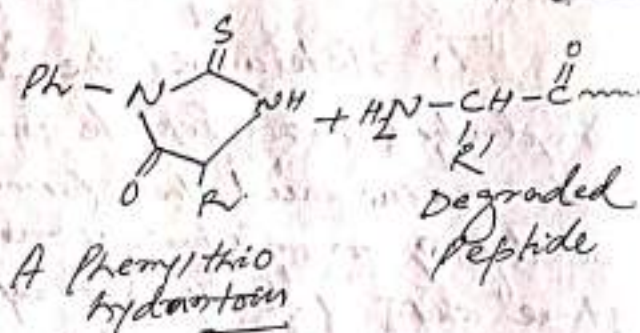 S
Ph - N NH + H2N - CH - C
O
O R R'
Degraded
Peptide
A Phenylthio
hydantoin